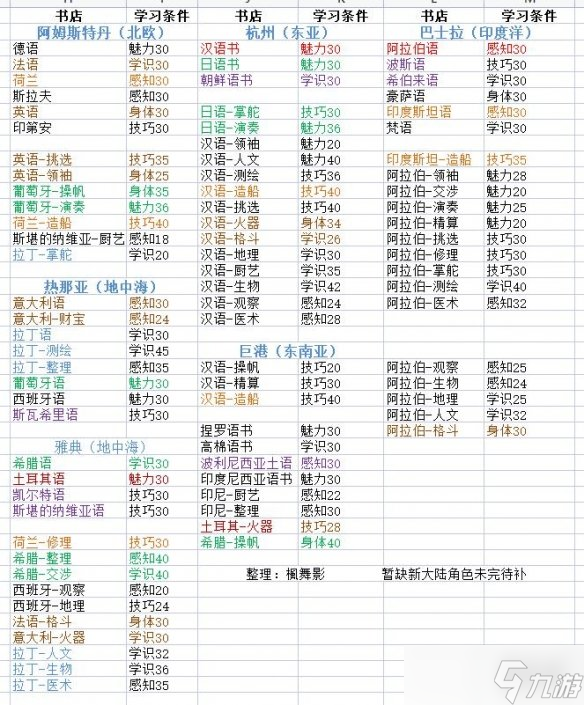 书店 学习条件 书店 学习条件 书店 学习条件
阿姆斯特丹（北欧） 杭州（东亚） 巴士拉（印度洋）
德语 魅力30 汉语书 魅力30 阿拉伯语 感知30
法语 学识30 日语书 魅力30 波斯语 技巧30
荷兰 感知30 朝鲜语书 学识30 希伯来语 学识30
斯拉夫 感知30 豪萨语 身体30
英语 身体30 日语-掌舵 技巧30 印度斯坦语 感知30
印第安 技巧30 日语-演奏 魅力36 梵语 学识30
汉语-领袖 魅力20
英语-挑选 技巧35 汉语-人文 魅力40 印度斯坦-造船 技巧35
英语-领袖 身体25 汉语-测绘 技巧36 阿拉伯-领袖 魅力28
葡萄牙-操帆 身体35 汉语-造船 技巧40 阿拉伯-交涉 魅力20
葡萄牙-演奏 魅力36 汉语-挑选 技巧40 阿拉伯-演奏 魅力25
荷兰-造船 技巧40 汉语-火器 身体34 阿拉伯-精算 魅力20
斯堪的纳维亚-厨艺 感知18 汉语-格斗 学识26 阿拉伯-挑选 技巧30
拉丁-掌舵 学识20 汉语-地理 学识30 阿拉伯-修理 技巧30
汉语-厨艺 学识35 阿拉伯-掌舵 技巧30
热那亚（地中海） 汉语-生物 学识42 阿拉伯-测绘 学识40
意大利语 感知30 汉语-观察 感知24 阿拉伯-医术 感知32
意大利-财宝 感知24 汉语-医术 感知28
拉丁语 学识30
拉丁-测绘 学识45 巨港（东南亚）
拉丁-整理 感知35 汉语-操帆 技巧20 阿拉伯-观察 感知25
葡萄牙语 魅力30 汉语-精算 技巧30 阿拉伯-生物 感知24
西班牙语 魅力30 汉语-造船 技巧40 阿拉伯-地理 学识25
斯瓦希里语 技巧30 阿拉伯-人文 学识32
捏罗语书 魅力30 阿拉伯-格斗 身体30
雅典（地中海） 高棉语书 学识30
希腊语 学识30 波利尼西亚土语 感知30
土耳其语 魅力30 印度尼西亚语书 魅力30
凯尔特语 技巧30 印尼-厨艺 感知22
斯堪的纳维亚语 技巧30 印尼-整理 感知30
土耳其-火器 技巧28
荷兰-修理 技巧30 希腊-操帆 身体40
希腊-整理 感知40
希腊-交涉 学识40 整理：楓舞影 暂缺新大陆角色未完待补
西班牙-观察 感知20
西班牙-地理 技巧24
法语-格斗 身体30
意大利-火器 学识30
拉丁-人文 学识32
拉丁-生物 学识36
拉丁-医术 感知35
九游